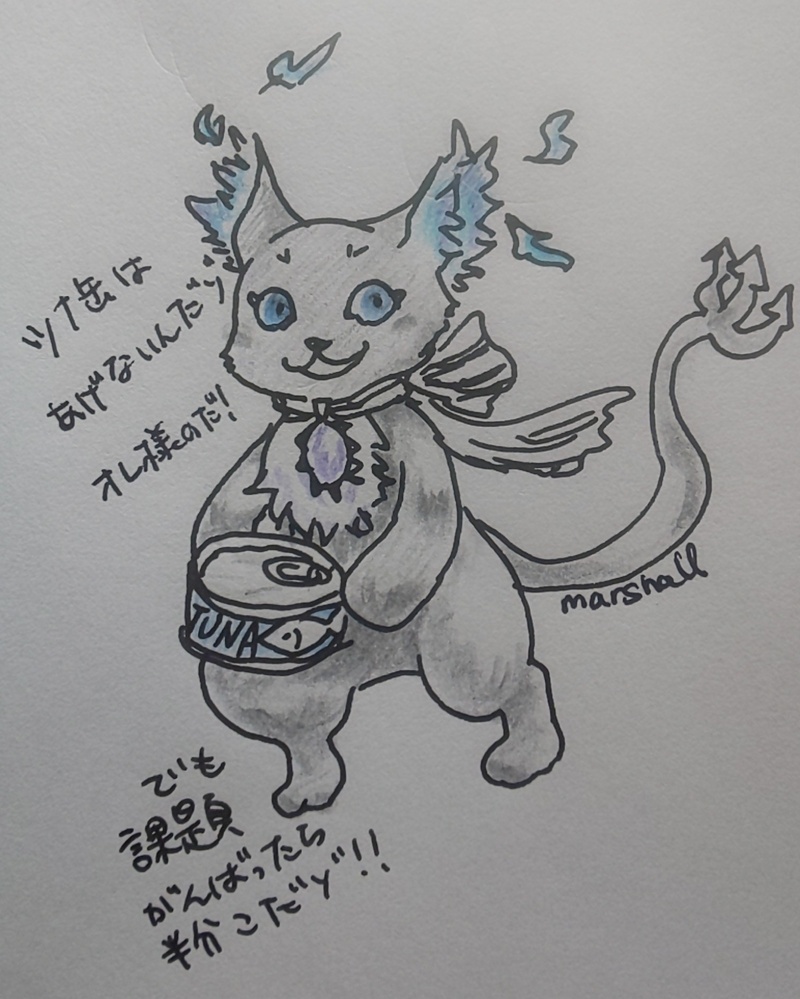 ツナ缶は
あげないんだゾ
オレ様のだ!
TUNA
marshall
でも
課題
がんばったら
半分こだゾ!!